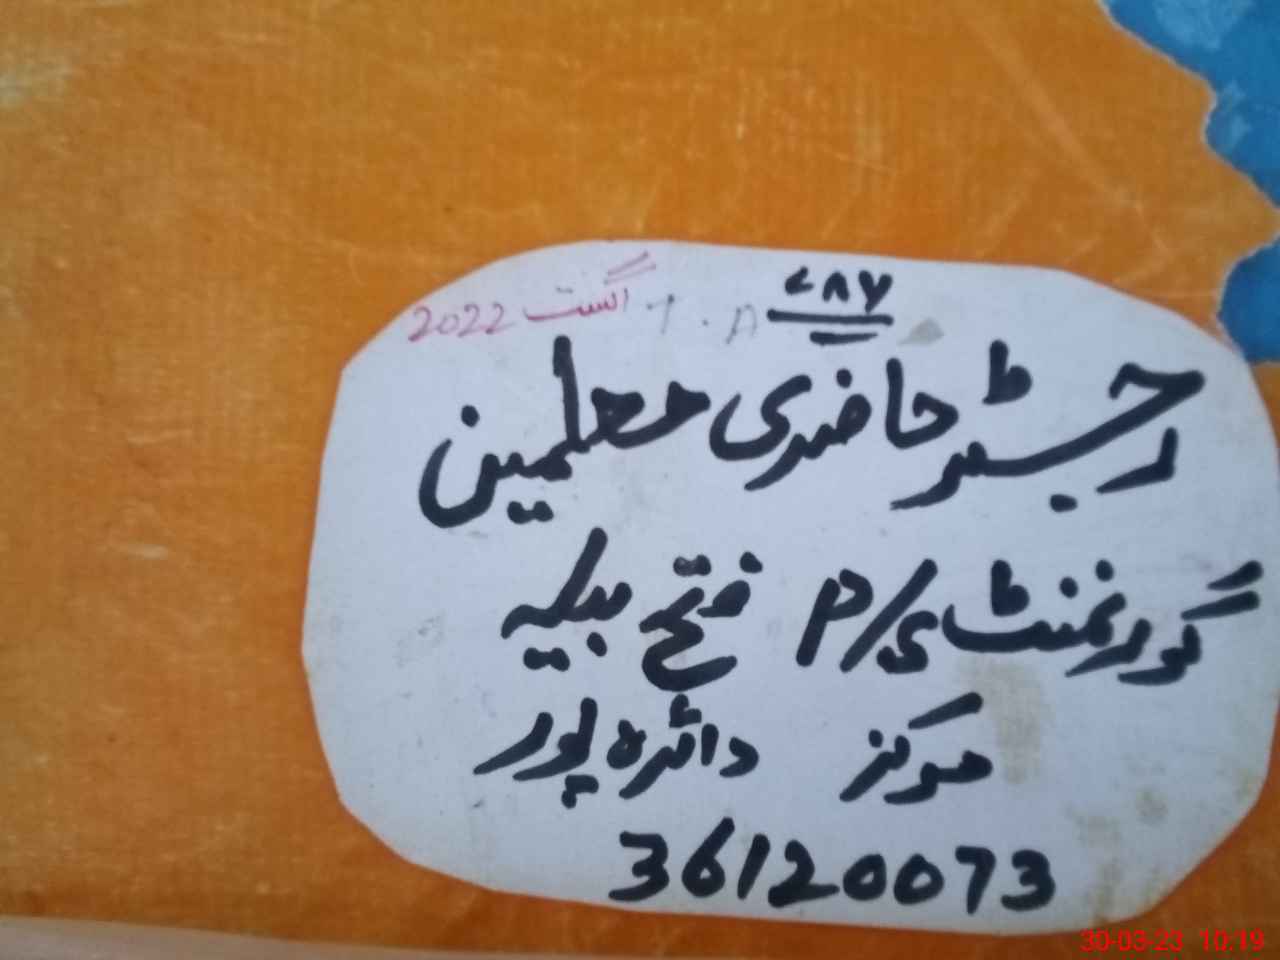 ۷۸۶
اگست 2022
رجسٹر حاضری معلمین
گورنمنٹ P/S فتح بیلہ
مرکز دائرہ پور
36120073
30-03-23 10:19